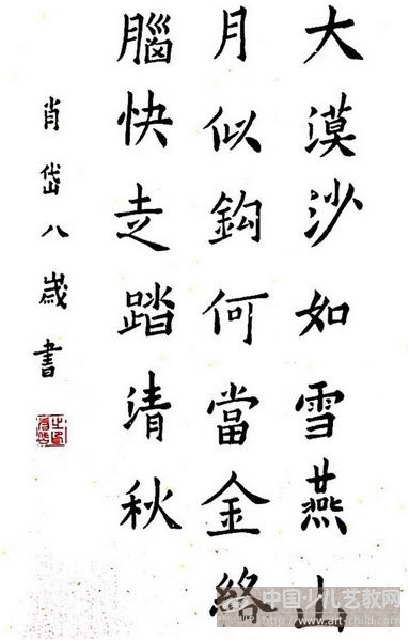 大漠沙如雪燕山
月似鈎何當金絡
腦快走踏清秋
肖岱八歲書
中国少儿艺教网
www.art-child.com